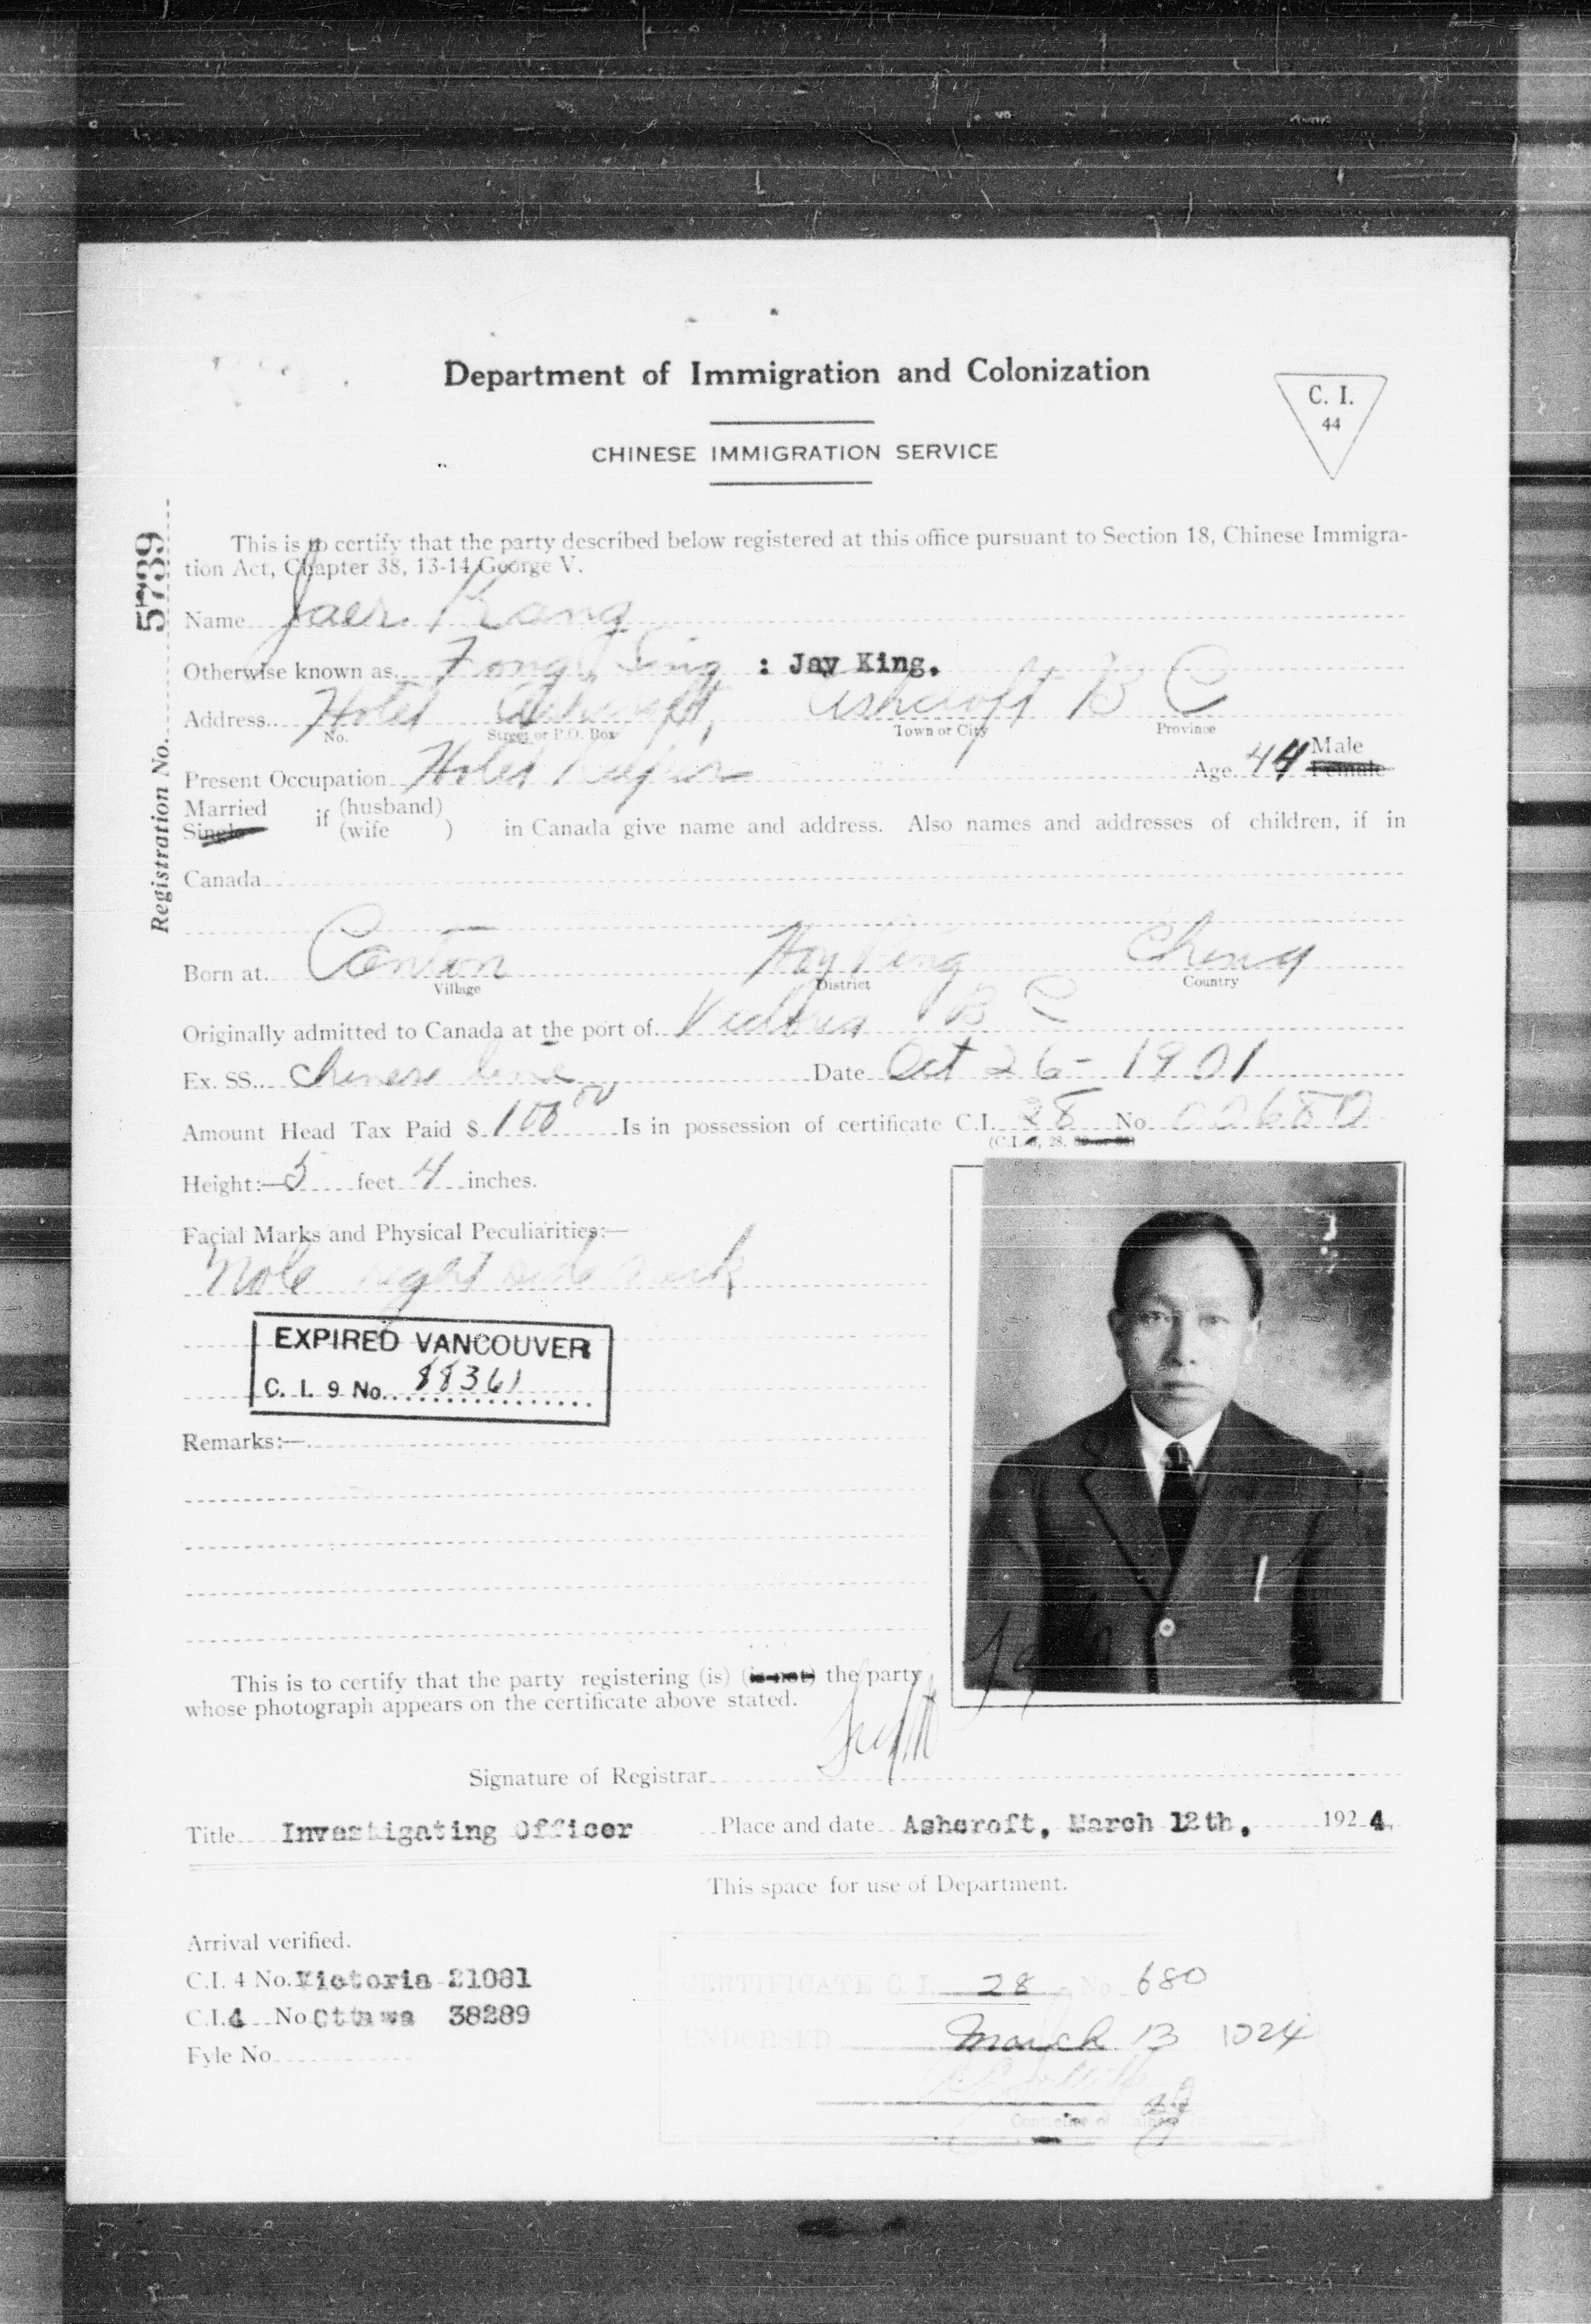 Department of Immigration and Colonization
C. I.
44
CHINESE IMMIGRATION SERVICE
Registration No. 5739
This is to certify that the party described below registered at this office pursuant to Section 18, Chinese Immigra-
tion Act, Chapter 38, 13-14 George V.
Name
Otherwise known as Fong Sing : Jay King.
Address Hotel Ashcroft, Ashcroft B C
No. Street or P.O. Box Town or City Province
Present Occupation Hotel Keeper Age 44 Male Female
Married
Single if (husband)
(wife ) in Canada give name and address. Also names and addresses of children, if in
Canada
Born at Canton Hoy Ping China
Village District Country
Originally admitted to Canada at the port of Victoria B C
Ex. SS. Chinese line Date Oct 26 - 1901
Amount Head Tax Paid $ 100 00 Is in possession of certificate C.I. 28 No. 00680
Height:— 5 feet 4 inches.
Facial Marks and Physical Peculiarities:—
Mole right side neck
EXPIRED VANCOUVER
C. I. 9 No. 88361
Remarks:—
This is to certify that the party registering (is) (is not) the party
whose photograph appears on the certificate above stated.
Signature of Registrar
Title Investigating Officer Place and date Ashcroft, March 12th, 1924.
This space for use of Department.
Arrival verified.
C.I. 4 No. Victoria 21081
C.I. 4 No Ottawa 38289
Fyle No
CERTIFICATE C. I. 28 No. 680
ENDORSED March 13 1924
Controller of Chinese